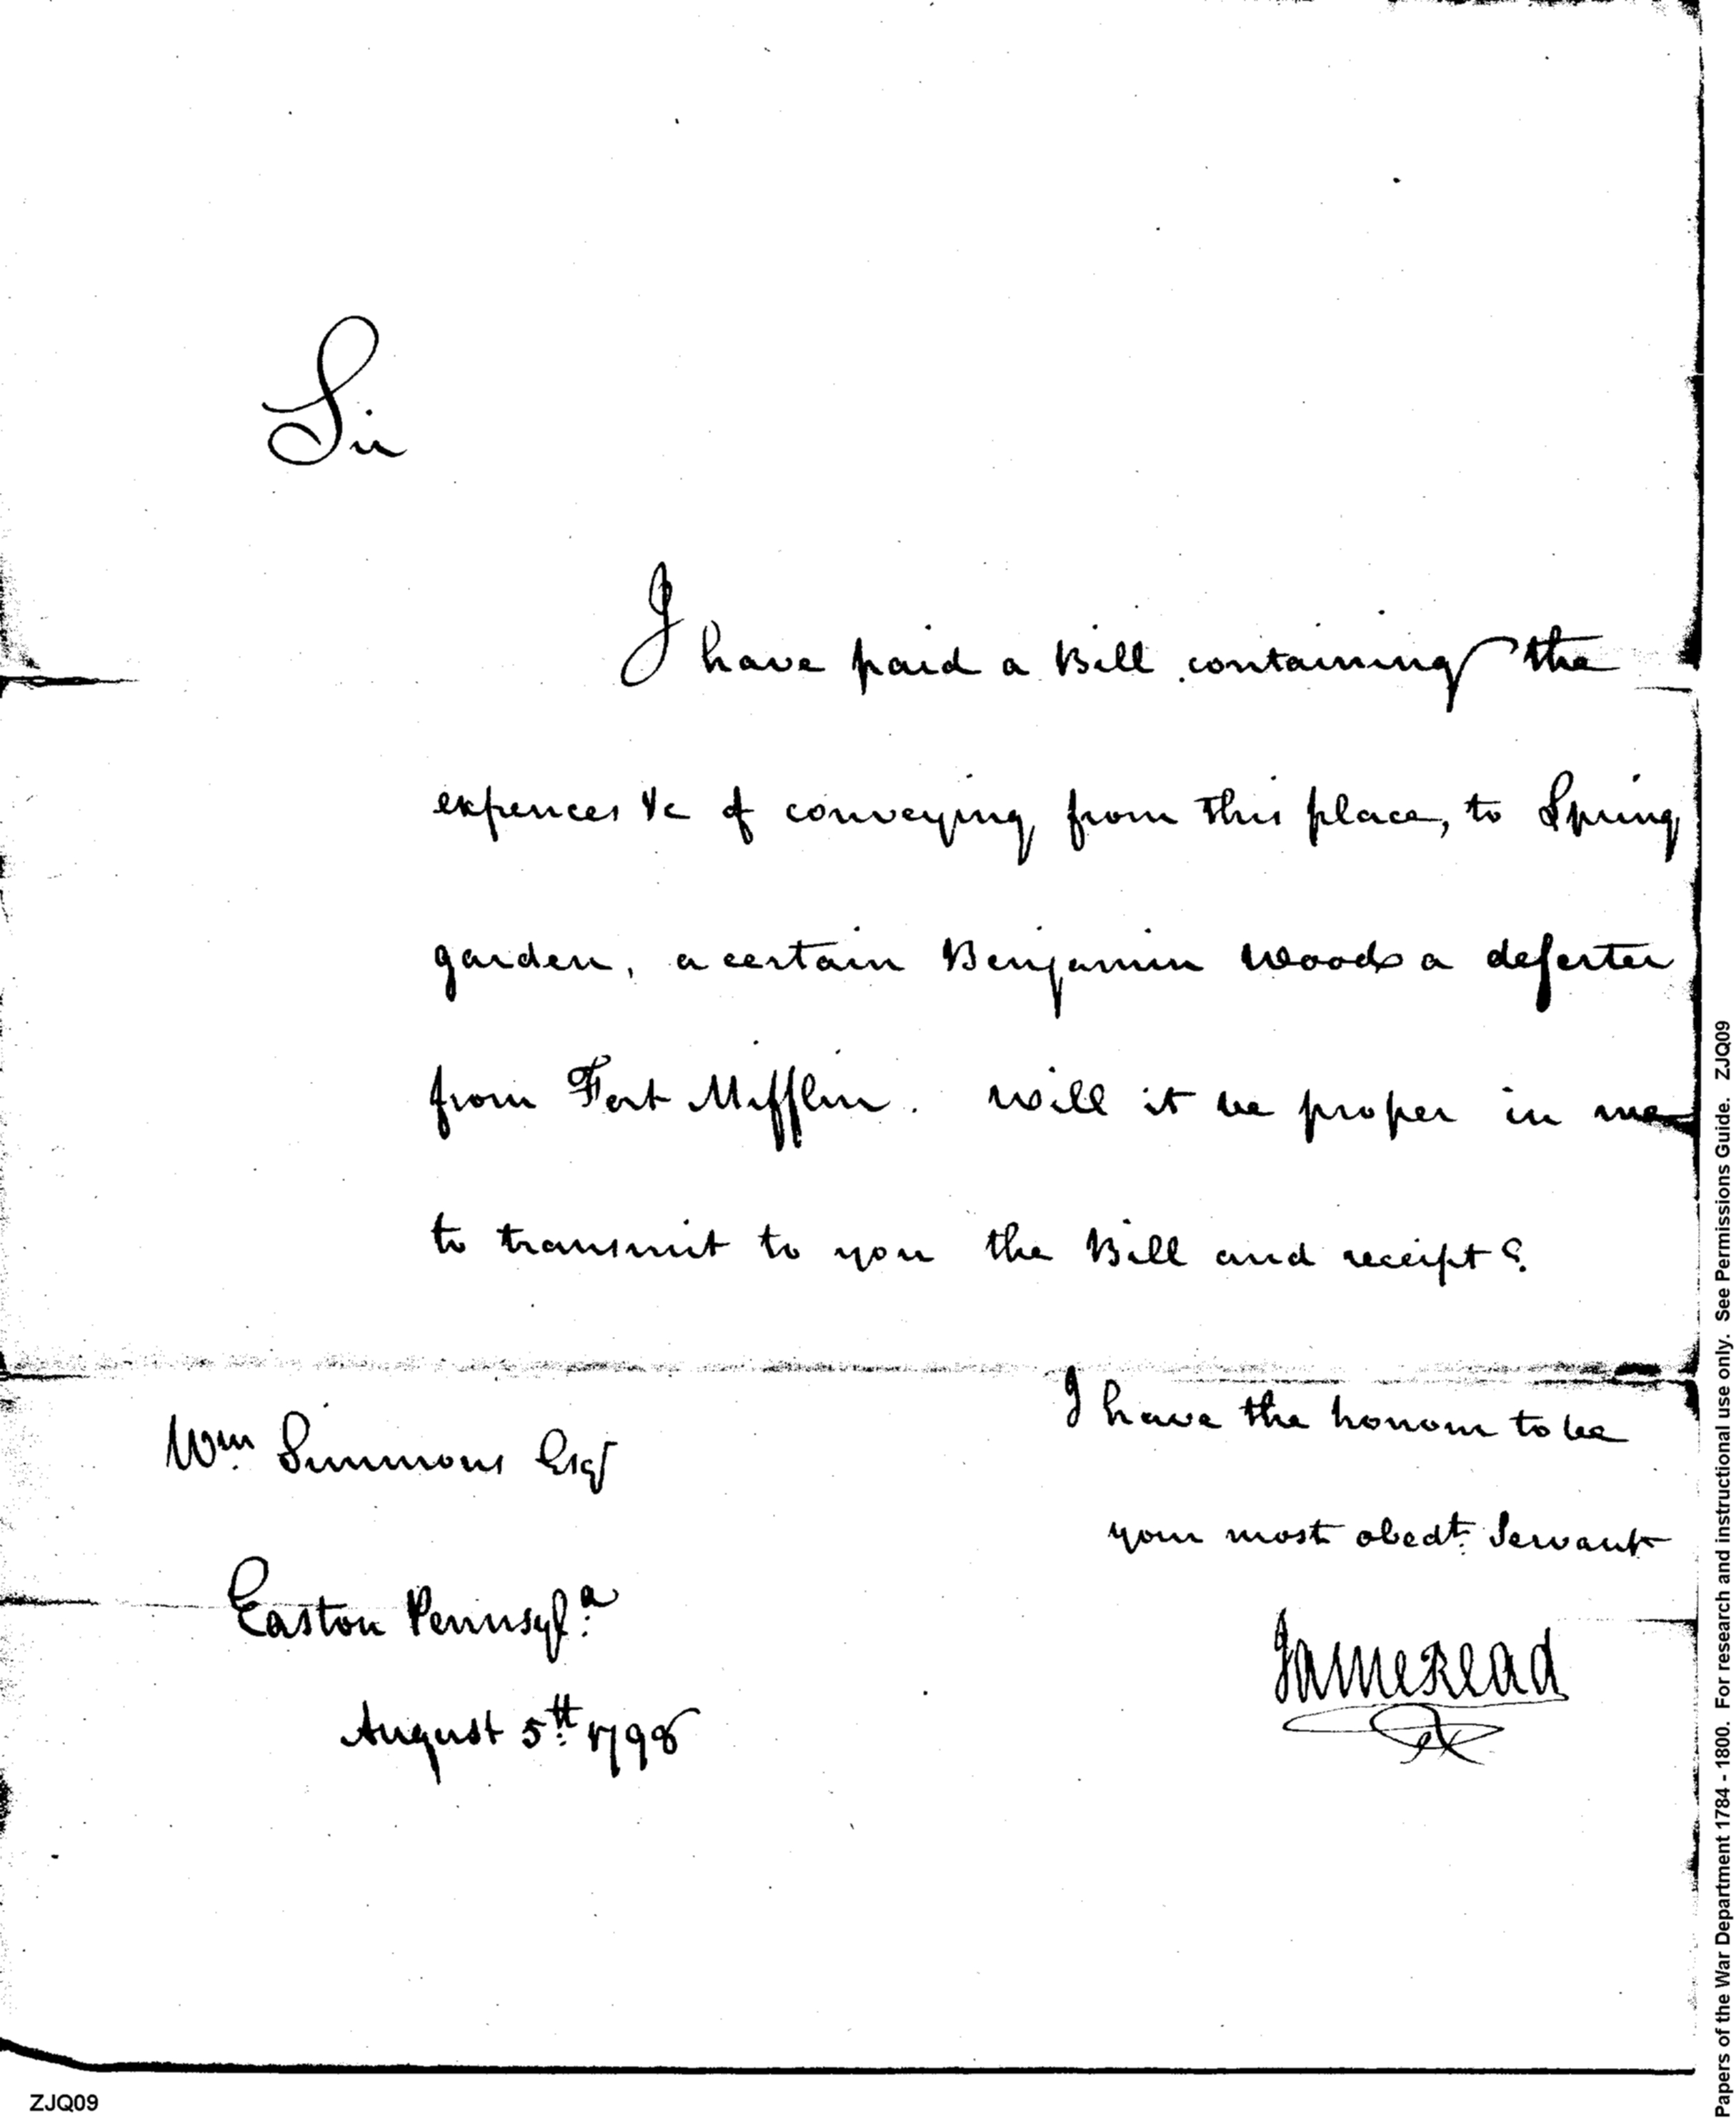 Sir
I have paid a Bill containing the
expences &c of conveying from this place, to Spring
garden, a certain Benjamin Woods a deserter
from Fort Mifflin. will it be proper in me
to transmit to you the Bill and receipt?
I have the honour to be
your most obedt. Servant
James Read
Wm. Simmons Esqr
Easton Pennsyla.
August 5th. 1798
ZJQ09
Papers of the War Department 1784 - 1800. For research and instructional use only. See Permissions Guide. ZJQ09